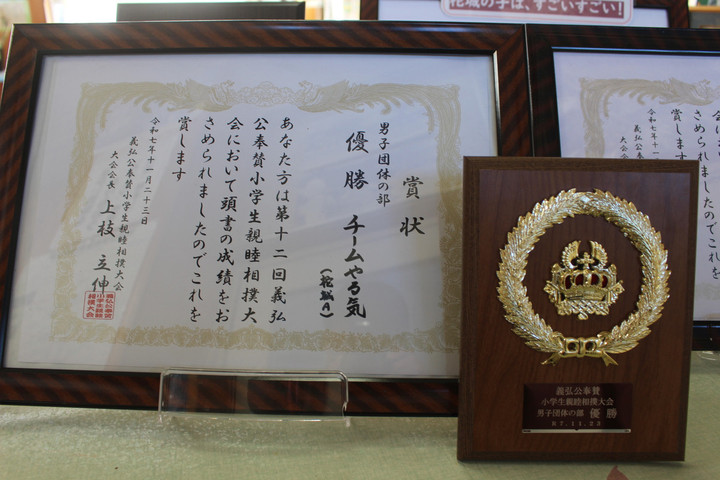 花城の子は、すごいすごい!
賞状
男子団体の部
優勝 チームやる気
(花城A)
あなた方は第十二回義弘
公奉賛小学生親睦相撲大
会において頭書の成績をお
さめられましたのでこれを
賞します
令和七年十一月二十三日
義弘公奉賛小学生親睦相撲大会
大会会長 上枝 立伸
義弘公奉賛
小学生親睦相撲大会
男子団体の部 優勝
07.11.23